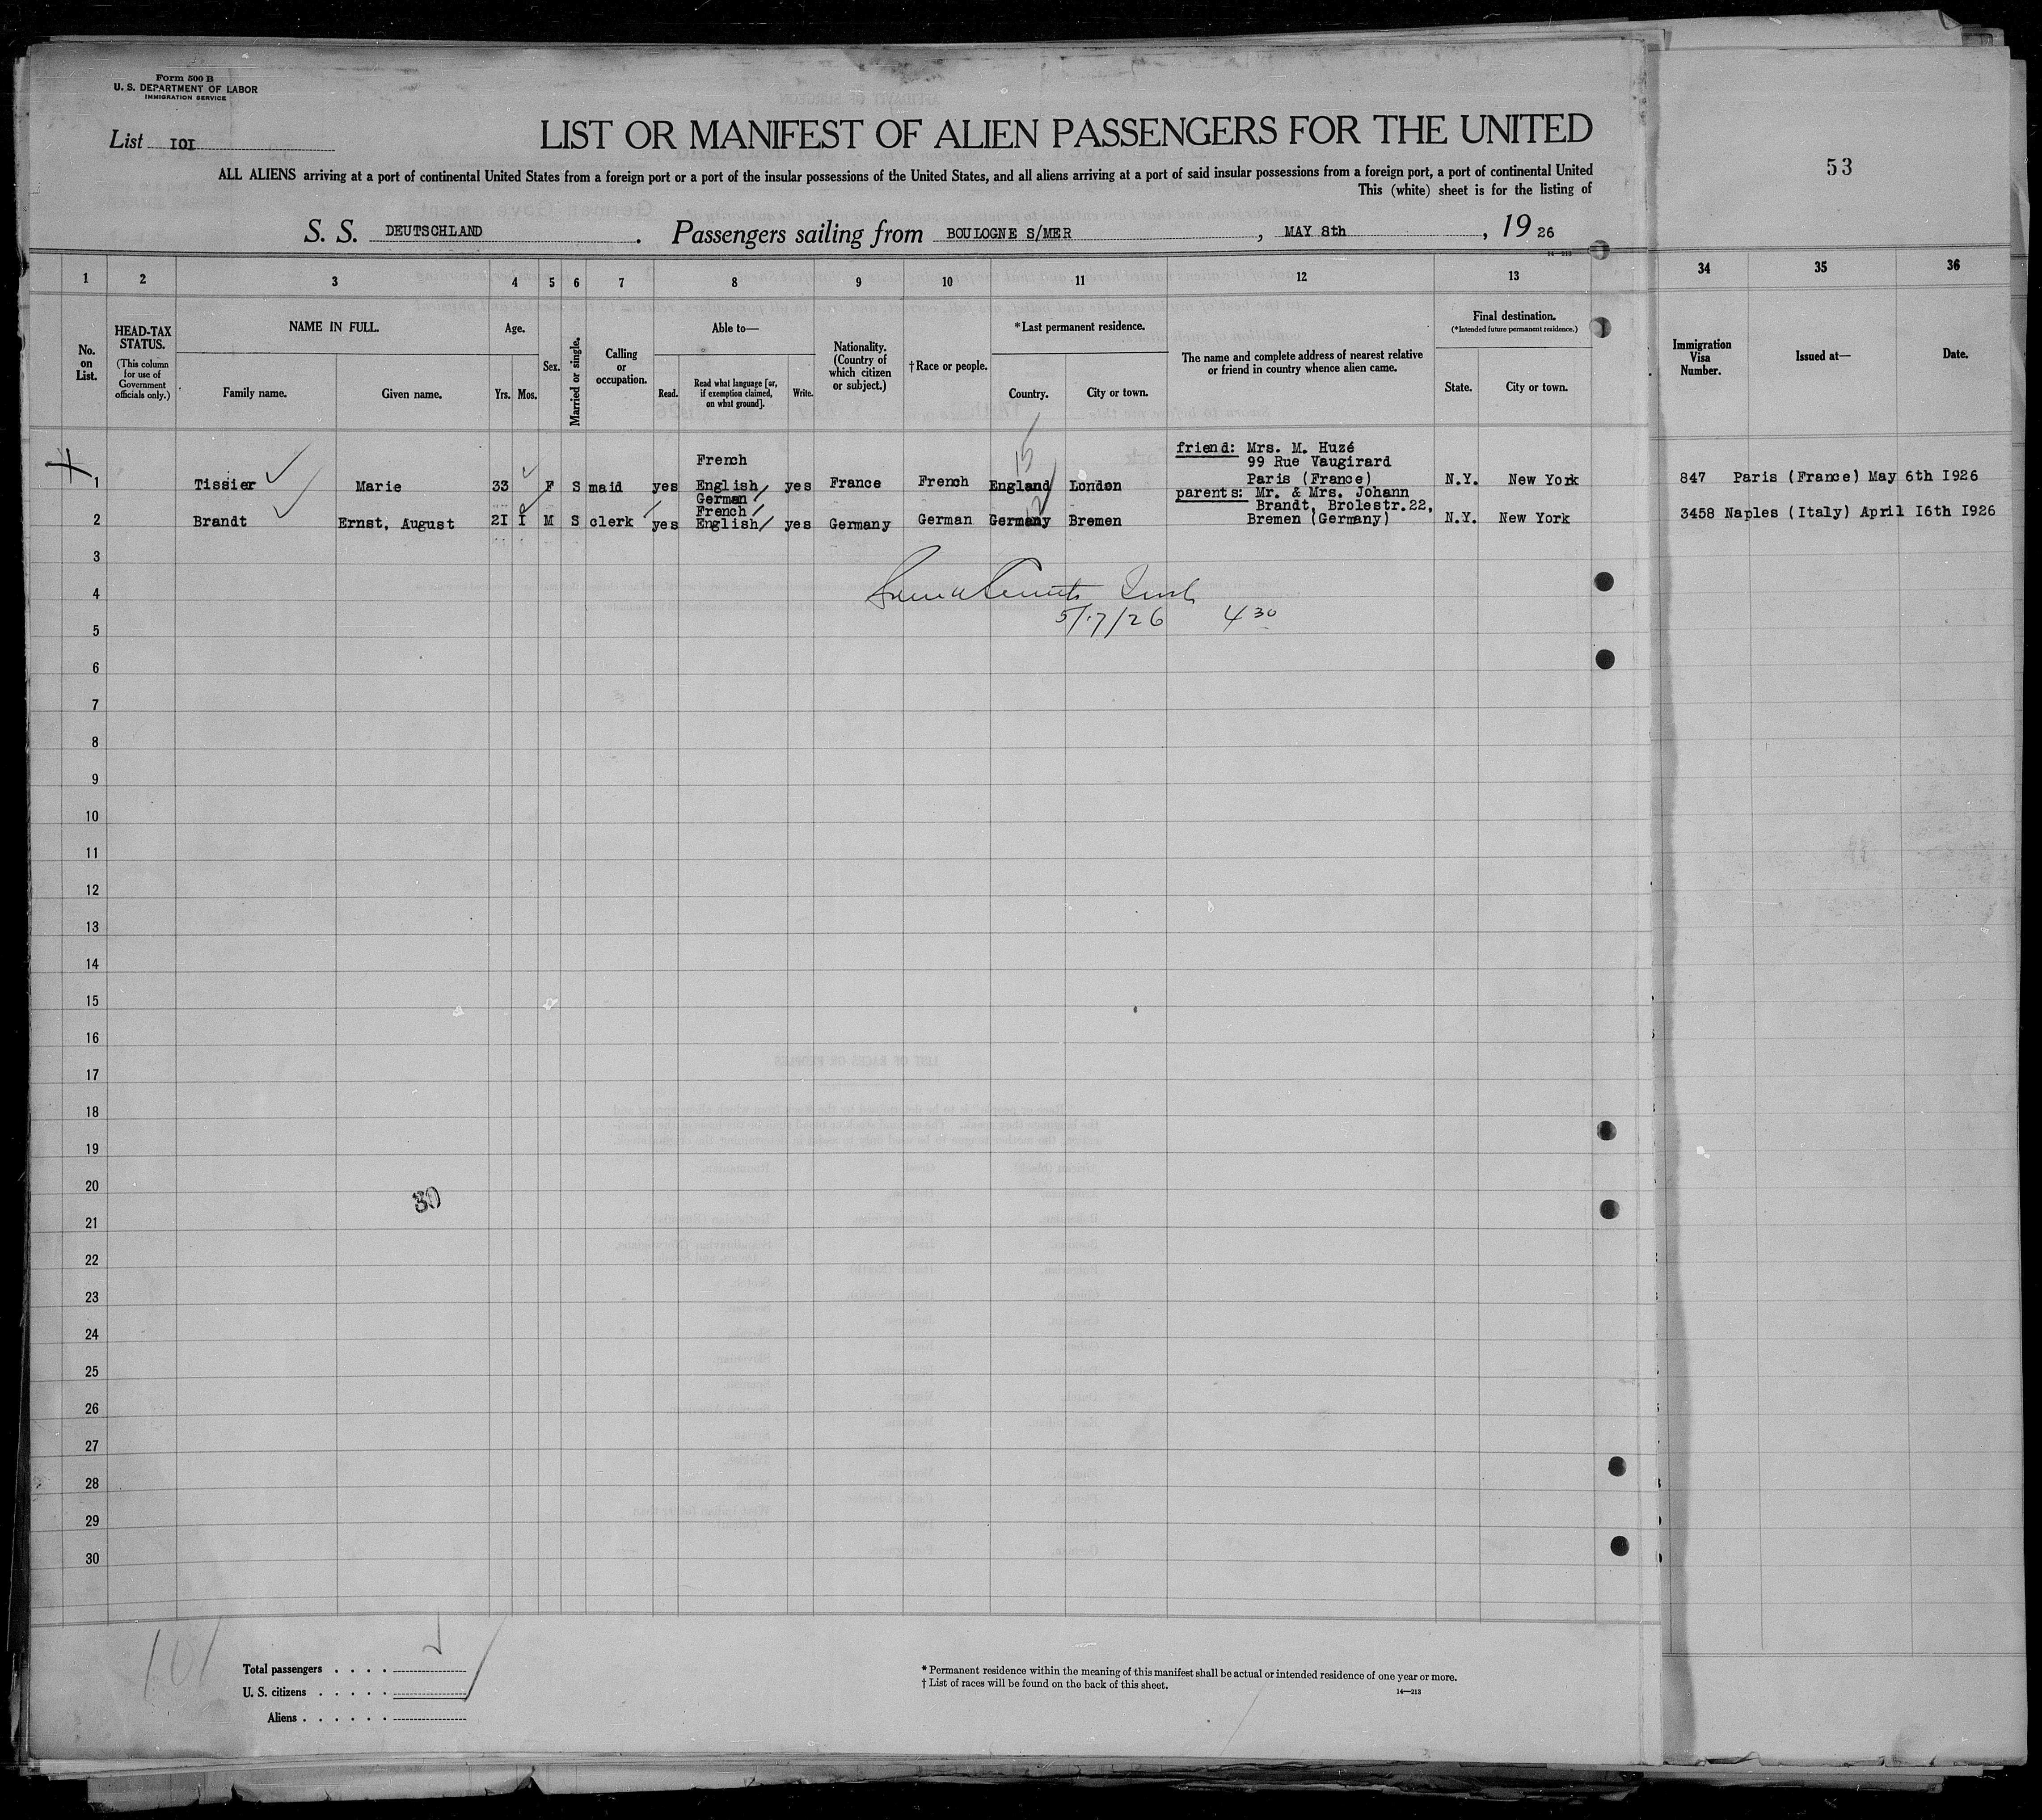 Form 500 B
U. S. DEPARTMENT OF LABOR
IMMIGRATION SERVICE
List IOI
LIST OR MANIFEST OF ALIEN PASSENGERS FOR THE UNITED
ALL ALIENS arriving at a port of continental United States from a foreign port or a port of the insular possessions of the United States, and all aliens arriving at a port of said insular possessions from a foreign port, a port of continental United
This (white) sheet is for the listing of
53
S. S. DEUTSCHLAND . Passengers sailing from BOULOGNE S/MER , MAY 8th , 19 26
14-213
1 2 3 4 5 6 7 8 9 10 11 12 13 34 35 36
No. on List.
HEAD-TAX STATUS.
(This column for use of Government officials only.)
NAME IN FULL.
Family name. Given name.
Age.
Yrs. Mos.
Sex.
Married or single.
Calling or occupation.
Able to—
Read. Read what language [or, if exemption claimed, on what ground]. Write.
Nationality. (Country of which citizen or subject.)
† Race or people.
* Last permanent residence.
Country. City or town.
The name and complete address of nearest relative or friend in country whence alien came.
Final destination.
(*Intended future permanent residence.)
State. City or town.
Immigration Visa Number.
Issued at—
Date.
friend: Mrs. M. Huzé
French 15 99 Rue Vaugirard
1 Tissier Marie 33 F S maid yes English yes France French England London Paris (France) N.Y. New York 847 Paris (France) May 6th I926
German parents: Mr. & Mrs. Johann
French Brandt, Brolestr.22,
2 Brandt Ernst, August 2I I M S clerk yes English yes Germany German Germany Bremen Bremen (Germany) N.Y. New York 3458 Naples (Italy) April I6th I926
3
4
5/17/26 4 30
5
6
7
8
9
10
11
12
13
14
15
16
17
18
19
20
30
21
22
23
24
25
26
27
28
29
30
101
Total passengers . . . .
U. S. citizens . . . . .
Aliens . . . . . .
* Permanent residence within the meaning of this manifest shall be actual or intended residence of one year or more.
† List of races will be found on the back of this sheet.
14—213